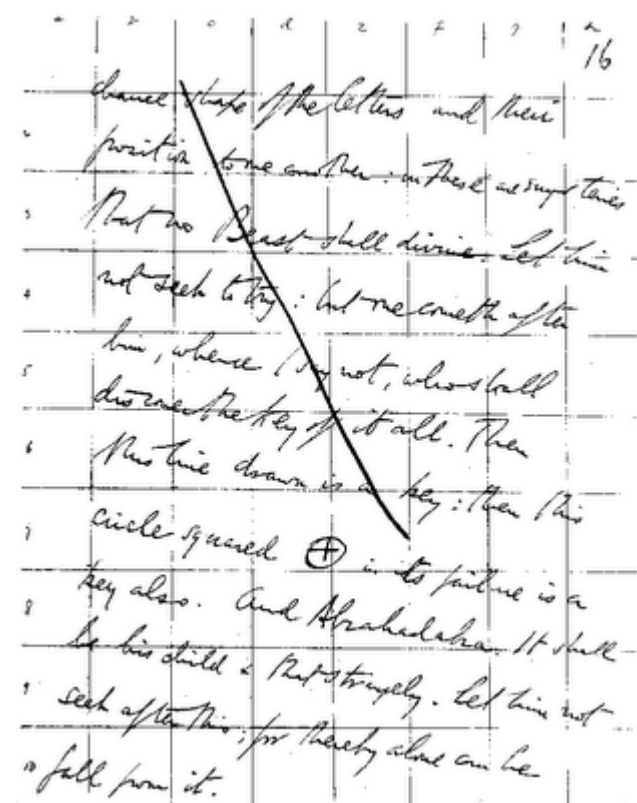 a b c d e f g h
16
chance shape of the letters and their
2 position to one another: in these are mysteries
3 that no Beast shall divine. Let him
4 not seek to try: but one cometh after
him, whence I say not, who shall
5 discover the key of it all. Then
6 this line drawn is a key: then this
7 circle squared ⊕ in its failure is a
key also. And Abrahadabra. It shall
8 be his child & that strangely. Let him not
9 seek after this; for thereby alone can he
10 fall from it.